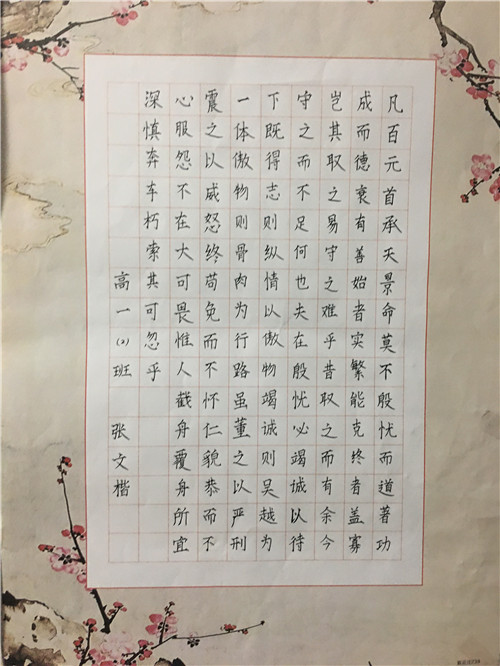 凡百元首承天景命莫不殷忧而道著功
成而德衰有善始者实繁能克终者盖寡
岂其取之易守之难乎昔取之而有余今
守之而不足何也夫在殷忧必竭诚以待
下既得志则纵情以傲物竭诚则吴越为
一体傲物则骨肉为行路虽董之以严刑
震之以威怒终苟免而不怀仁貌恭而不
心服怨不在大可畏惟人载舟覆舟所宜
深慎奔车朽索其可忽乎
高一(2)班 张文楷